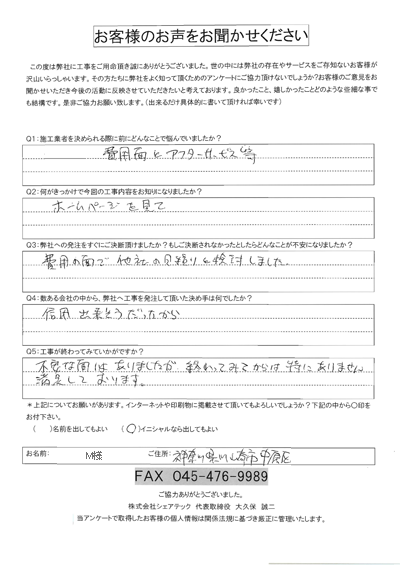 お客様のお声をお聞かせください
この度は弊社に工事をご用命頂き誠にありがとうございました。世の中には弊社の存在やサービスをご存知ないお客様が
沢山いらっしゃいます。その方たちに弊社をよく知って頂くためのアンケートにご協力頂けないでしょうか?お客様のご意見をお
聞かせいただき今後の活動に反映させていただきたいと考えております。良かったこと、嬉しかったことどのような些細な事で
も結構です。是非ご協力お願い致します。(出来るだけ具体的に書いて頂ければ幸いです)
Q1:施工業者を決められる際に前にどんなことで悩んでいましたか?
費用面とアフターサービス等
Q2:何がきっかけで今回の工事内容をお知りになりましたか?
ホームページを見て
Q3:弊社への発注をすぐにご決断頂けましたか?もしご決断されなかったとしたらどんなことが不安になりましたか?
費用の面で他社の見積りと検討しました。
Q4:数ある会社の中から、弊社へ工事を発注して頂いた決め手は何でしたか?
信用出来そうだったから
Q5:工事が終わってみていかがですか?
不安な面はありましたが終わってみてからは特にありません
満足しております。
*上記についてお願いがあります。インターネットや印刷物に掲載させて頂いてもよろしいでしょうか?下記の中から○印を
お付下さい。
( )名前を出してもよい (○)イニシャルなら出してもよい
お名前: M様 ご住所: 神奈川県川崎市中原区
FAX 045-476-9989
ご協力ありがとうございました。
株式会社シェアテック 代表取締役 大久保 誠二
当アンケートで取得したお客様の個人情報は関係法規に基づき厳正に管理いたします。